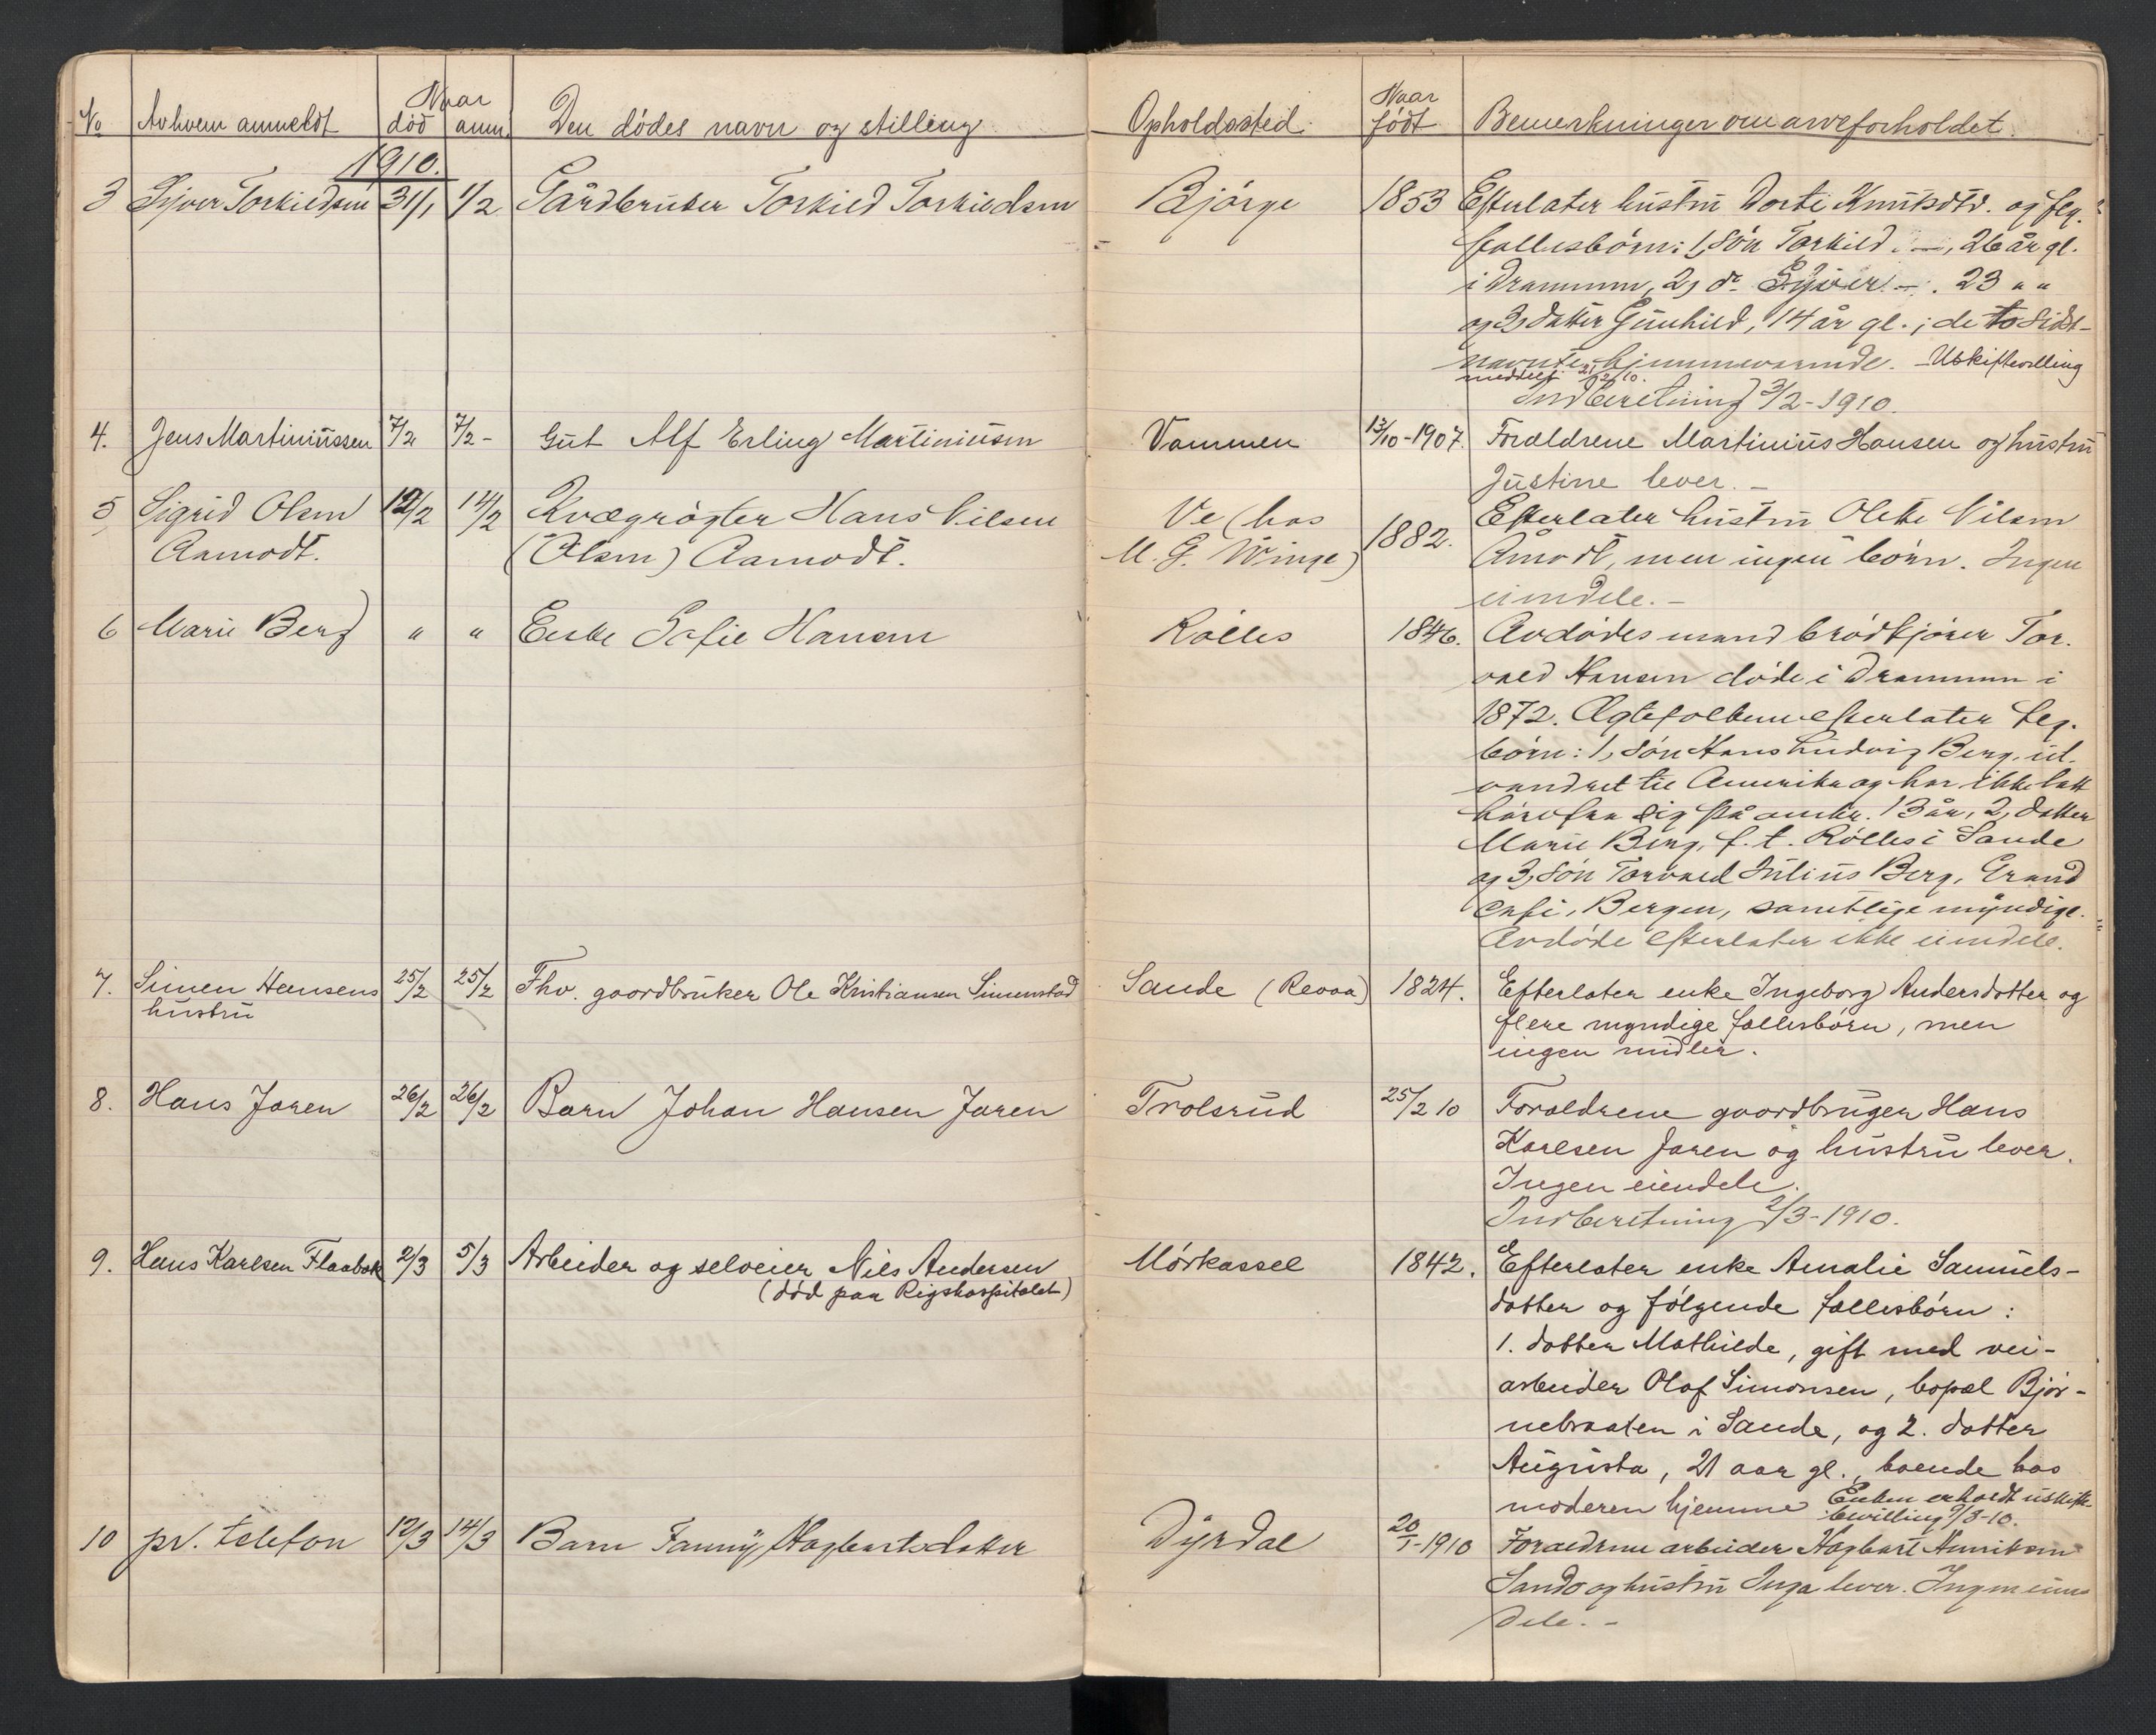 No Avhvem anmeldt Naar død anm. Den dödes navn og stilling Opholdssted Naar født Bemerkninger om arveforholdet.
1910.
3 Sjver Torkildsen 31/1 1/2 Gårdbruker Torkild Torkildsen Björge 1853 Efterlater hustru Dorte Knutsdtr. og flg.
fællesbörn: 1, sön Torkild —, 26 år gl.
i Drammen, 2, do Syver —. 23 " "
og 3, datter Gunhild, 14 år gl.; de to sidst-
nævnte hjemmeværende. - Uskiftevilling
meddelt 21/2 10.
Indberetning 3/2 - 1910.
4. Jens Martiniussen 7/2 7/2 - Gut Alf Erling Martiniusen Vammen 13/10-1907. Forældrene Martinius Hansen og hustru
Justine lever. -
5 Sigrid Olsen 12/2 14/2 Kvægrögter Hans Nilsen Ve (hos 1882. Efterlater hustru Olette Nilsen
Aamodt. (Olsen) Aamodt. M. G. Winge) Åmodt, men ingen börn. Ingen
eiendele. -
6 Marie Berg " " Enke Sofie Hansen Rölles 1846. Avdödes mand brödkjörer Tor-
vald Hansen döde i Drammen i
1872. Ægtefolkene efterlater flg.
börn: 1, sön Hans Ludvig Berg, ut-
vandret til Amerika og har ikke latt
höre fra sig på omtr. 13 år, 2, datter
Marie Berg, f. t. Rölles i Sande
og 3, sön Torvald Julius Berg, Grand
Café, Bergen, samtlige myndige.
Avdöde efterlater ikke eiendele.
7. Simen Hansens 25/2 25/2 Fhv. gaardbruker Ole Kristiansen Simenstad Sande (Revaa) 1824. Efterlater enke Ingeborg Andersdatter og
hustru flere myndige fællesbörn, men
ingen midler.
8. Hans Jaren 26/2 26/2 Barn Johan Hansen Jaren Trolsrud 25/2 10 Forældrene gaardbruger Hans
Karlsen Jaren og hustru lever.
Ingen eiendele.
Indberetning 2/3 - 1910.
9. Hans Karlsen Flaabæk 2/3 5/3 Arbeider og selveier Nils Andersen Mörkassel 1842. Efterlater enke Amalie Samuels-
(död paa Rigshospitalet) datter og fölgende fællesbörn:
1. datter Mathilde, gift med vei-
arbeider Olaf Simonsen, bopæl Björ-
nebraaten i Sande, og 2. datter
Augusta, 21 aar gl., boende hos
moderen hjemme Enken erholdt uskifte-
bevilling 9/3-10.
10 pr. telefon 12/3 14/3 Barn Fanny Hagbartsdatter Dyrdal 20/1-1910 Forældrene arbeider Hagbart Henriksen
Sando og hustru Inga lever. Ingen eien-
dele. -